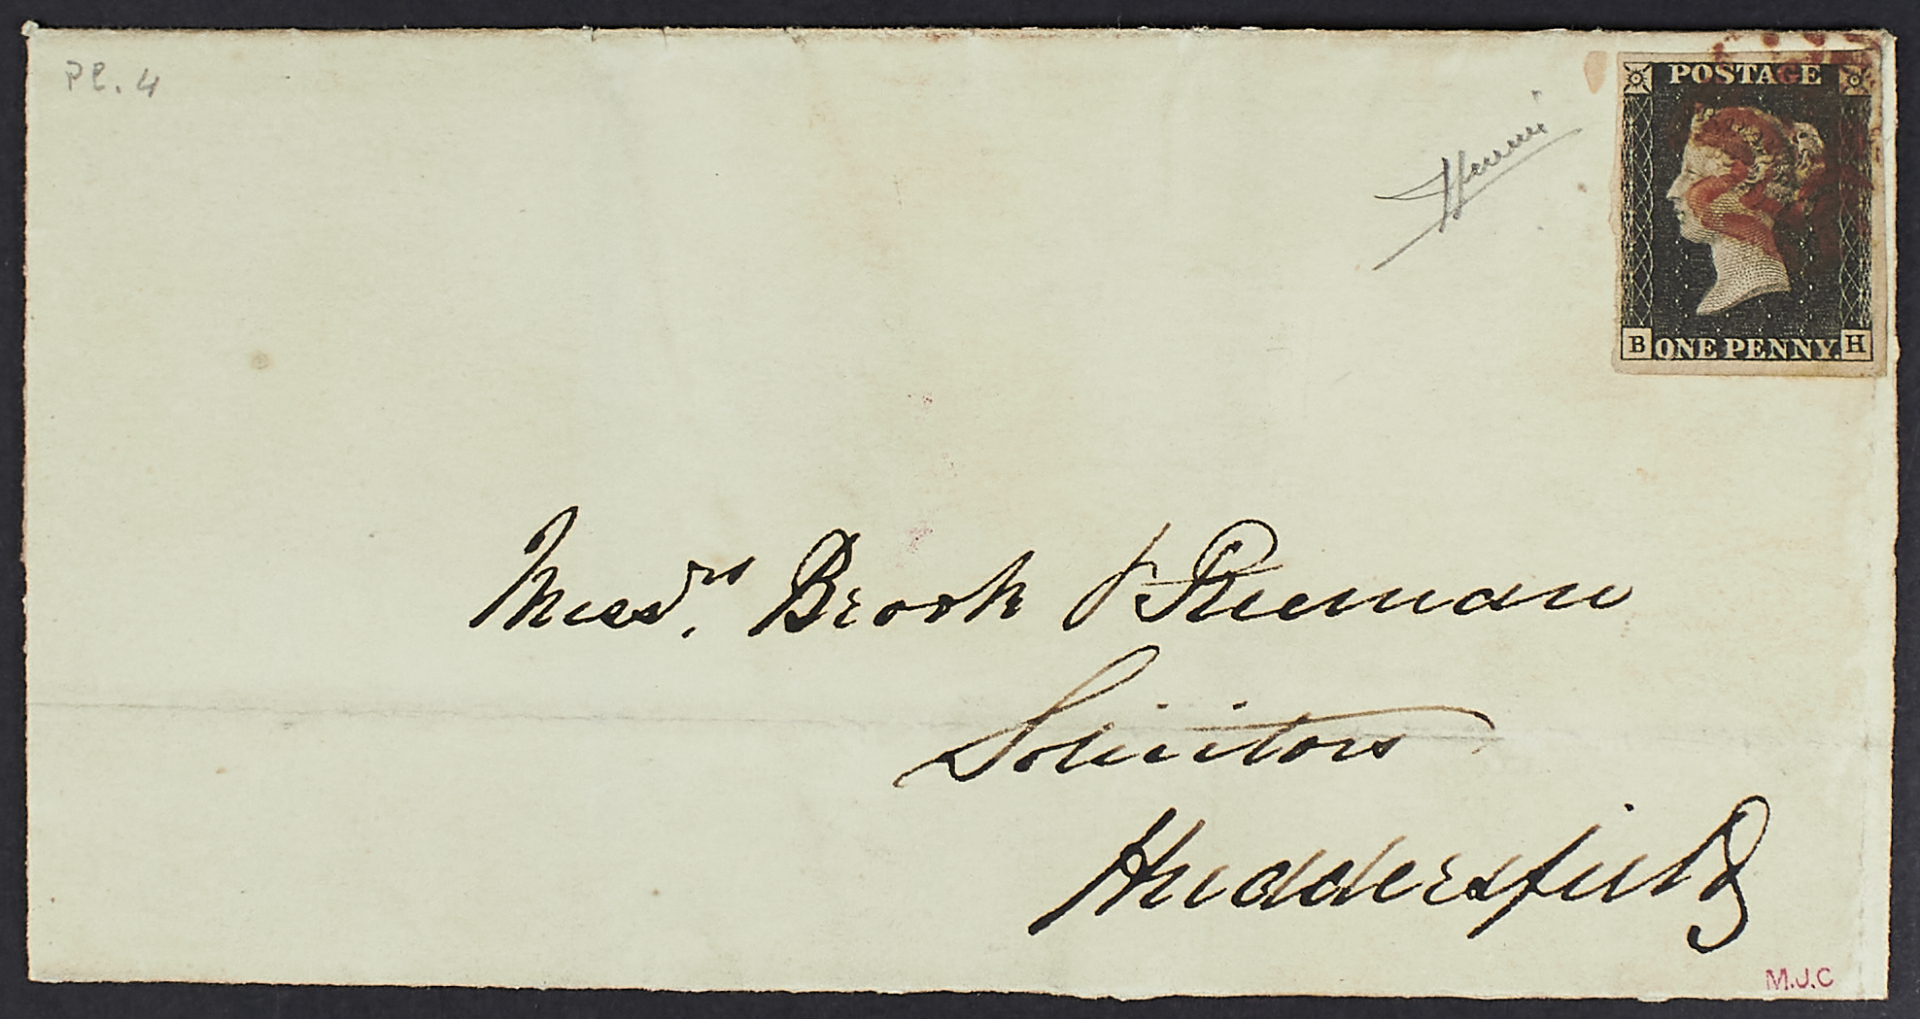 Pl. 4
POSTAGE
B ONE PENNY. H
Messrs. Brook & Freeman
Solicitors
Huddersfield
M.J.C